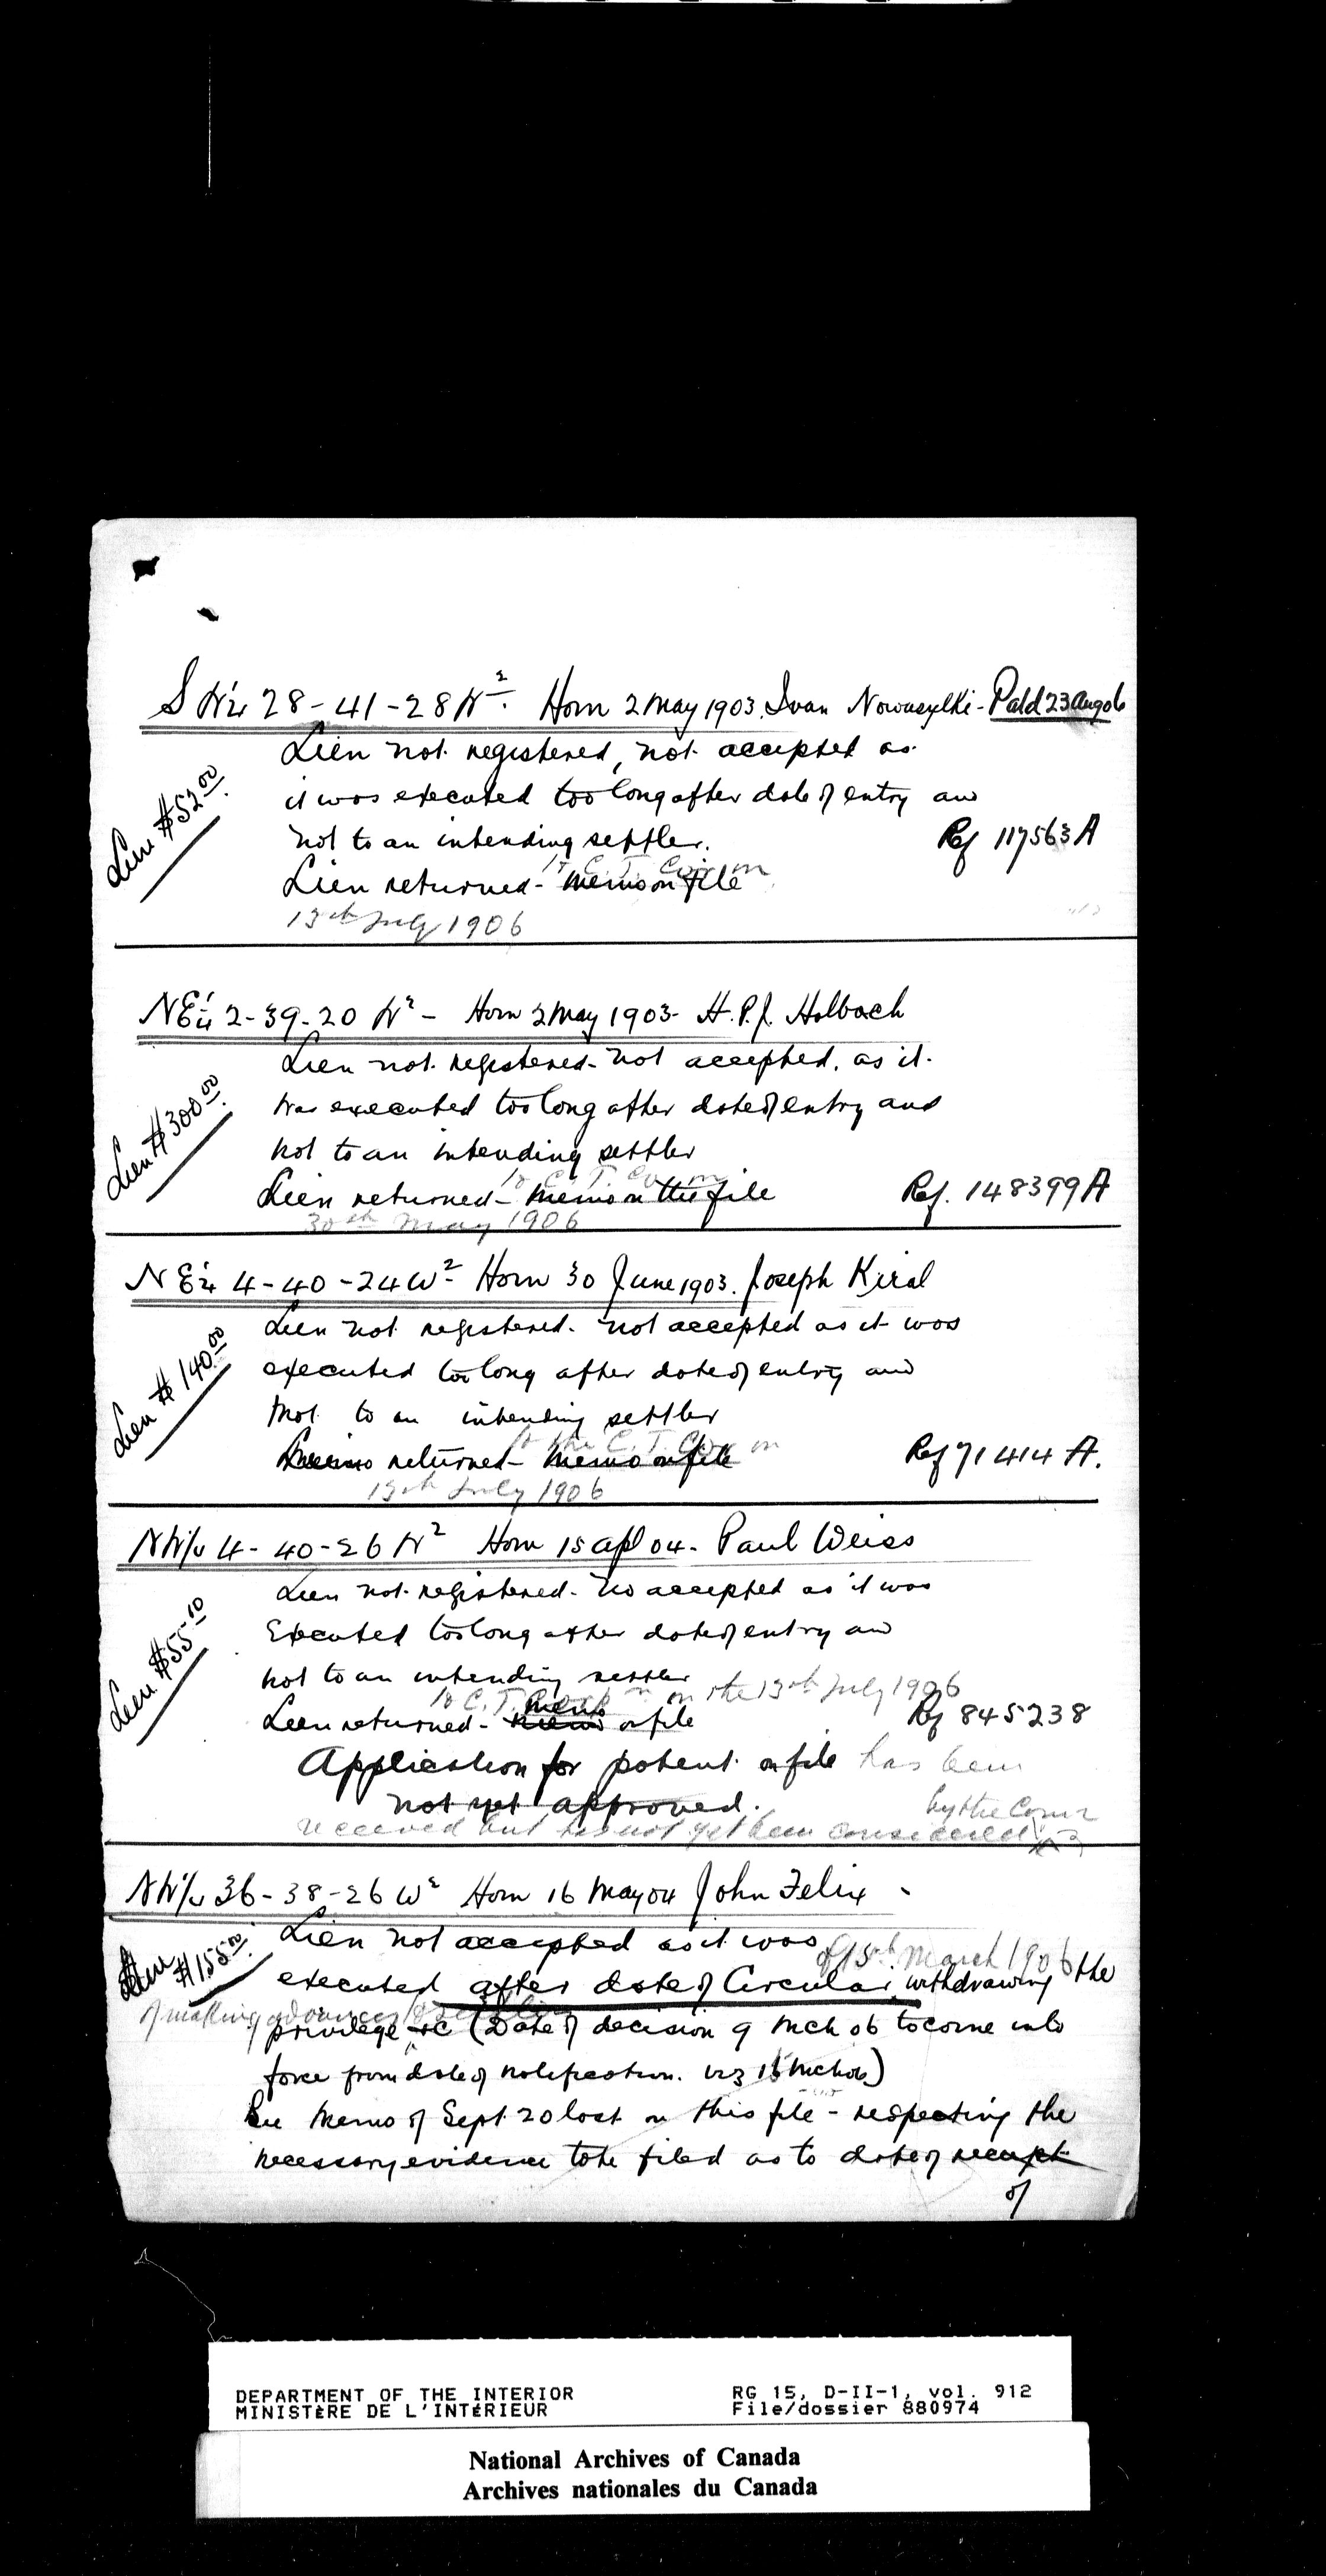 SW¼ 28-41-28 W2. Hom 2 May 1903. Ivan Nowasylki - Patd 23 Aug 06
Lien not registered, not accepted as
it was executed too long after date of entry and
not to an intending settler.
Lien $52.00
Ref 117563 A
to C. T. Co. on
Lien returned - Memo on file
13th July 1906
NE¼ 2-39-20 W2 - Hom 2 May 1903 - H. P. J. Holbach
Lien not registered - not accepted, as it
was executed too long after date of entry and
not to an intending settler
Lien $300.00
to C. T. Co. on
Lien returned - Memo on this file Ref. 148399 A
30th May 1906
NE¼ 4-40-24 W2 - Hom 30 June 1903. Joseph Kiral
Lien not registered - not accepted as it was
executed too long after date of entry and
not to an intending settler
Lien $140.00
to the C. T. Co. on
returned - Memo on file Ref 71414 A.
13th July 1906
NW¼ 4-40-26 W2 Hom 15 Apl 04 - Paul Weiss
Lien not registered - no accepted as it was
Executed too long after date of entry and
not to an intending settler
Lien $55.10
to C. T. on the 13th July 1906
Lien returned - Memo on file Ref 845238
Application for patent on file has been
not yet approved. by the Comr
received but has not yet been considered
NW¼ 36-38-26 W2 Hom 16 May 04 John Felix -
Lien not accepted as it was of 15th March 1906
Lien $155.00
executed after date of Circular withdrawing the
of making advances to settlers
privilege &c (Date of decision 9 Mch 06 to come into
force from date of notification. viz 15 Mch 06)
See Memo of Sept. 20 last on this file - respecting the
necessary evidence to be filed as to date of receipt
of
DEPARTMENT OF THE INTERIOR
MINISTÈRE DE L'INTÉRIEUR
RG 15, D-II-1, vol. 912
File/dossier 880974
National Archives of Canada
Archives nationales du Canada